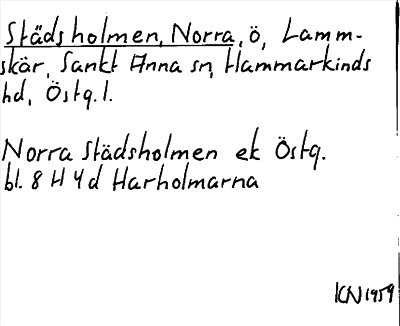 Städsholmen, Norra, ö, Lamm-
skär, Sankt Anna sn, Hammarkinds
hd, Östg. l.
Norra Städsholmen ek Östg.
bl. 8 H 4 d Harholmarna
KN 1959